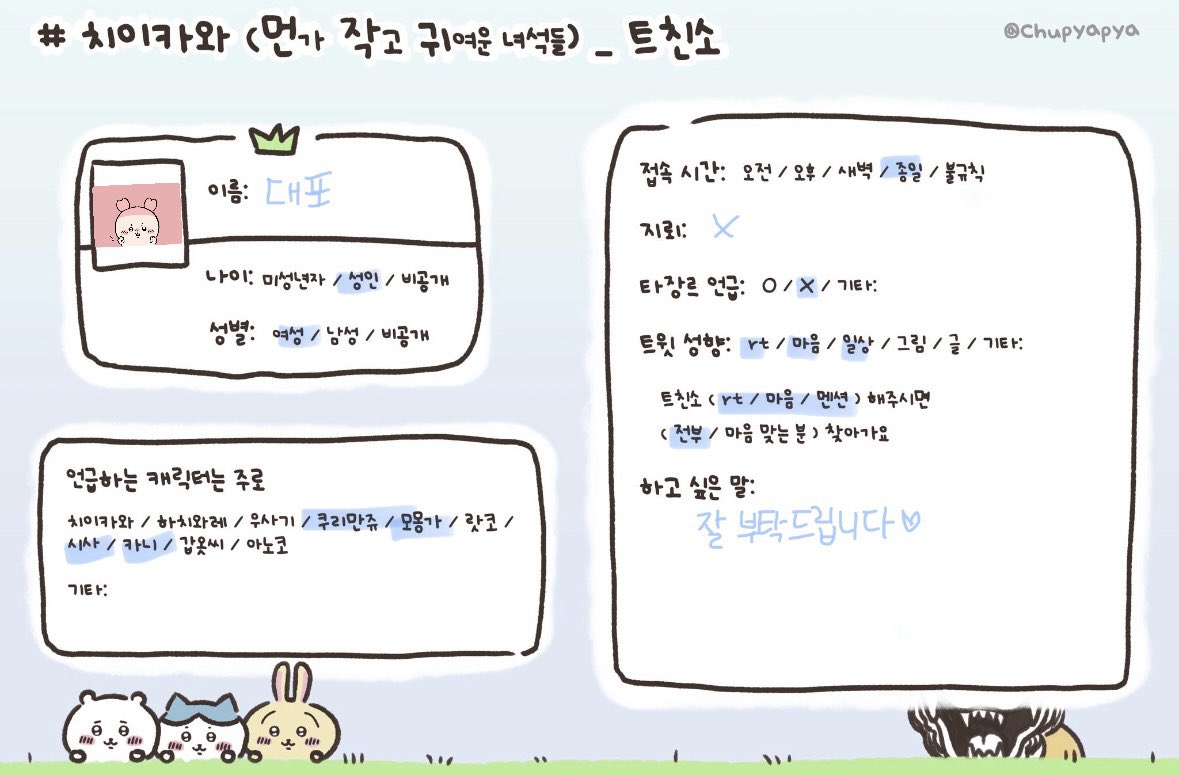 # 치이카와 (먼가 작고 귀여운 녀석들) _ 트친소
@Chupyapya
이름: 대포
나이: 미성년자 / 성인 / 비공개
성별: 여성 / 남성 / 비공개
언급하는 캐릭터는 주로
치이카와 / 하치와레 / 우사기 / 쿠리만쥬 / 모몽가 / 랏코 /
시사 / 카니 / 갑옷씨 / 아노코
기타:
접속 시간: 오전 / 오후 / 새벽 / 종일 / 불규칙
지뢰: X
타장르 언급: O / X / 기타:
트윗 성향: rt / 마음 / 일상 / 그림 / 글 / 기타:
트친소 ( rt / 마음 / 멘션 ) 해주시면
( 전부 / 마음 맞는 분 ) 찾아가요
하고 싶은 말:
잘 부탁드립니다♡